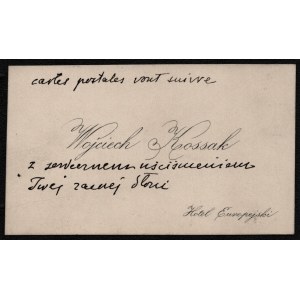 cartes postales vont suivre
Wojciech Kossak
z serdecznem uściśnieniem
Twej zacnej dłoni
Hotel Europejski